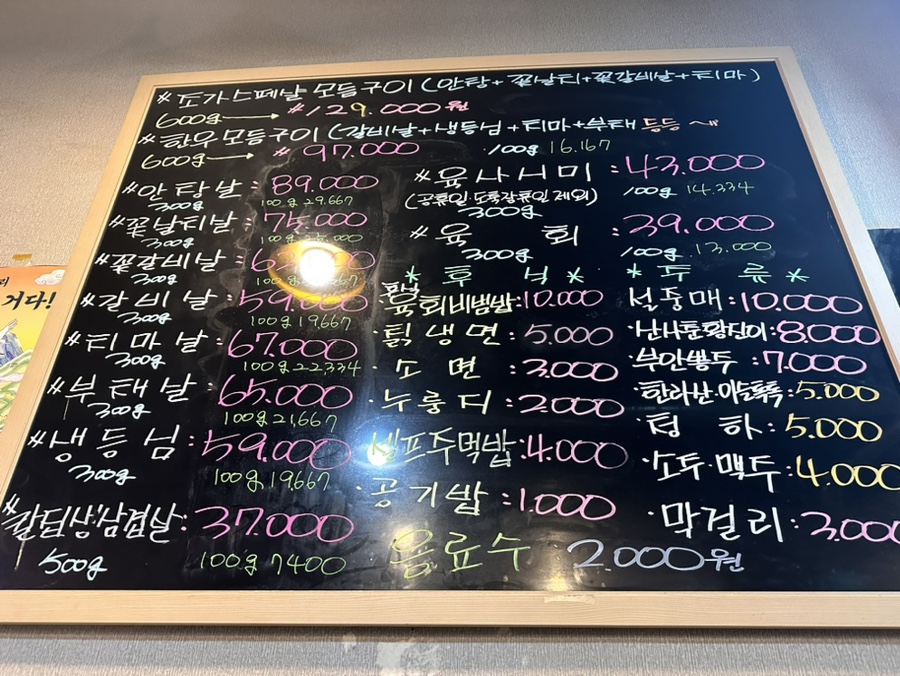 * 스페샬 모듬구이 (안창+꽃살치+꽃갈비살+치마)
600g → # 129.000원
* 한우모듬구이 (갈비살+생등심+치마+부채 등등~
600g → # 97.000 100g 16.167
# 안창살 : 89.000
300g 100g 29.667
# 꽃살치살 : 75.000
300g 100g
# 꽃갈비살 :
300g 100g
# 갈비살 : 59.000
300g 100g 19.667
# 치마살 : 67.000
300g 100g 22.334
# 부채살 : 65.000
300g 100g 21.667
# 생등심 : 59.000
300g 100g 19.667
# 칼집생삼겹살 : 37.000
500g 100g 7400
# 육사시미 : 43.000
(공휴일·도축장휴일 제외) 100g 14.334
300g
# 육 회 : 39.000
300g 100g 13.000
* 후 식 *
한우
육회비빔밥 : 10.000
· 칡냉면 : 5.000
· 소면 : 3.000
· 누룽지 : 2.000
· 셀프주먹밥 : 4.000
· 공기밥 : 1.000
음료수 2.000원
* 주 류 *
설중매 : 10.000
황진이 : 8.000
· 부안뽕주 : 7.000
· 한라산·이슬톡톡 : 5.000
· 청 하 : 5.000
· 소주·맥주 : 4.000
· 막걸리 : 3.000
거다!